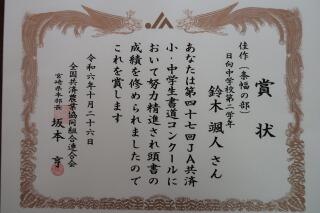 賞状
佳作（条幅の部）
日向中学校第二学年
鈴木颯人さん
あなたは第四十七回JA共済
小・中学生書道コンクールに
おいて努力精進され頭書の
成績を修められましたので
これを賞します
令和六年十月二十六日
全国共済農業協同組合連合会
宮崎県本部長 坂本亨